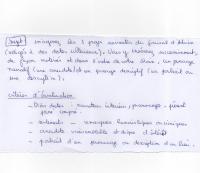 Sujet : imaginez les 3 pages suivantes du journal d'Adrien
(rédigés à des dates ultérieures). Vous y traiterez successivement,
de façon motivée et dans l'ordre de votre choix, un passage
narratif (une anecdote) et un passage descriptif (un portrait ou
une description).
Critères d'évaluation
- Dates : narrateur interne, personnage, passé
composé.
- remarques humoristiques ou ironiques
- anecdote vraisemblable et digne d'intérêt
- portrait d'un personnage ou description d'un lieu.